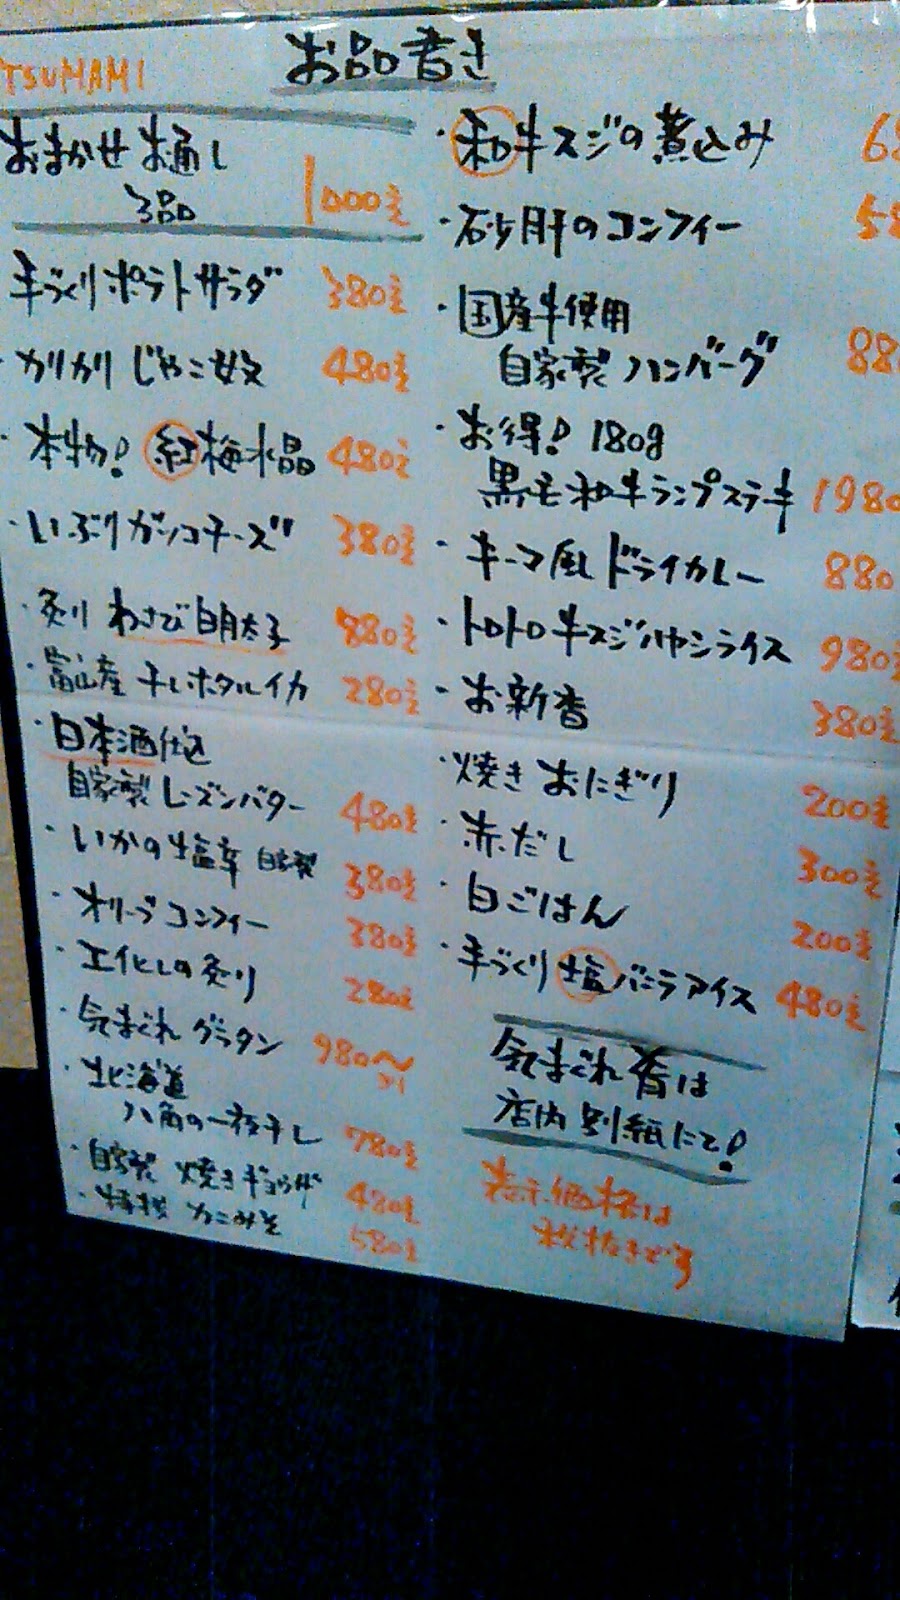 TSUMAMI
お品書き
おまかせお通し
3品 1000を
手づくりポテトサラダ 380を
・カリカリじゃこ
・本物!紅梅水晶 480を
・いぶりガッコチーズ 380を
・炙りわさび明太子 880を
・富山産 干しホタルイカ 280を
・日本酒仕込
自家製レーズンバター 480を
・いかの塩辛 自家製 380を
・オリーブコンフィー 380を
・エイヒレの炙り 280を
・気まぐれグラタン 980〜
・北海道
八角の一夜干し 780を
・自家製 焼きギョウザ 480を
・特撰 カニみそ 580を
・和牛スジの煮込み
・砂肝のコンフィー
・国産牛使用
自家製ハンバーグ 880
・お得!180g
黒毛和牛ランプステーキ 1980
・キーマ風ドライカレー 880
・トロトロ牛スジハヤシライス 980を
・お新香 380を
・焼きおにぎり 200を
・赤だし 300を
・白ごはん 200を
・手づくり塩バニラアイス 480を
気まぐれ肴は
店内別紙にて!
表示価格は
税抜きです